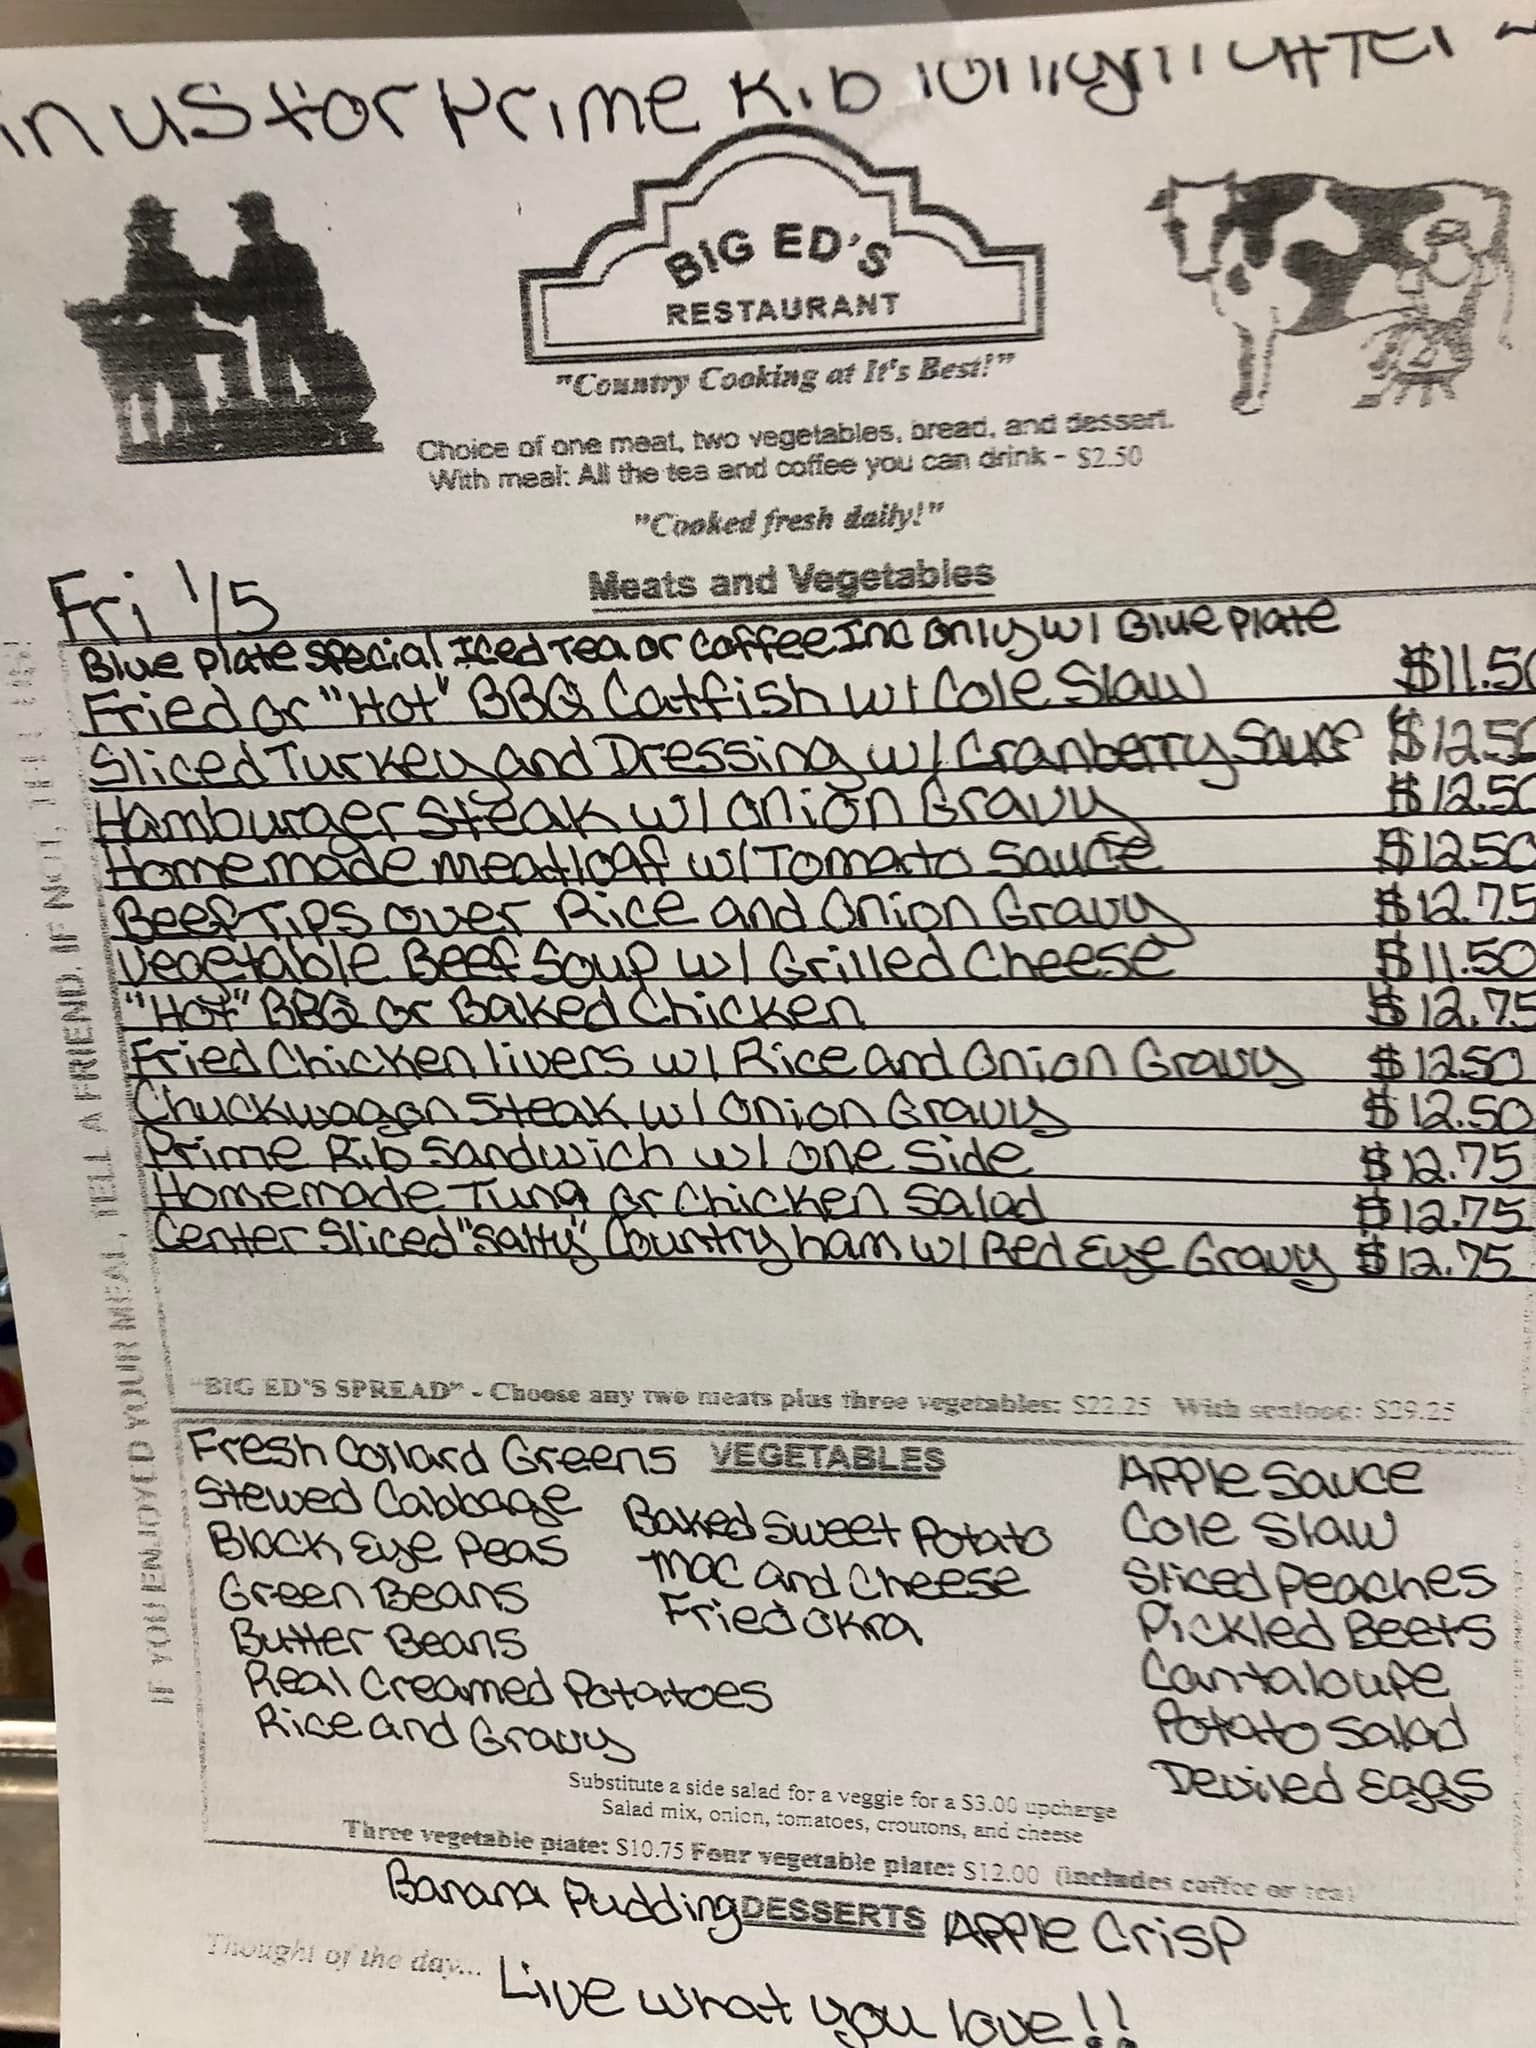 in us for Prime Rib Tonight after
BIG ED'S
RESTAURANT
"Country Cooking at It's Best!"
Choice of one meat, two vegetables, bread, and dessert.
With meal: All the tea and coffee you can drink - $2.50
"Cooked fresh daily!"
Fri 1/5
Meats and Vegetables
Blue Plate Special Iced Tea or Coffee Inc Only w/ Blue Plate
Fried or "Hot" BBQ Catfish w/ Cole Slaw $11.50
Sliced Turkey and Dressing w/ Cranberry Sauce $12.50
Hamburger Steak w/ Onion Gravy $12.50
Homemade Meatloaf w/ Tomato Sauce $12.50
Beef Tips over Rice and Onion Gravy $12.75
Vegetable Beef Soup w/ Grilled Cheese $11.50
"Hot" BBQ or Baked Chicken $12.75
Fried Chicken livers w/ Rice and Onion Gravy $12.50
Chuckwagon Steak w/ Onion Gravy $12.50
Prime Rib Sandwich w/ One Side $12.75
Homemade Tuna or Chicken Salad $12.75
Center Sliced "Salty" Country ham w/ Red Eye Gravy $12.75
"BIG ED'S SPREAD" - Choose any two meats plus three vegetables: $22.25 With seafood: $29.25
IF YOU ENJOYED YOUR MEAL, TELL A FRIEND. IF NOT, TELL US!
VEGETABLES
Fresh Collard Greens
Stewed Cabbage
Black Eye Peas
Green Beans
Butter Beans
Real Creamed Potatoes
Rice and Gravy
Baked Sweet Potato
Mac and Cheese
Fried Okra
Apple Sauce
Cole Slaw
Sliced Peaches
Pickled Beets
Cantaloupe
Potato Salad
Deviled Eggs
Substitute a side salad for a veggie for a $3.00 upcharge
Salad mix, onion, tomatoes, croutons, and cheese
Three vegetable plate: $10.75 Four vegetable plate: $12.00 (includes coffee or tea)
Banana Pudding DESSERTS Apple Crisp
Thought of the day... Live what you love!!